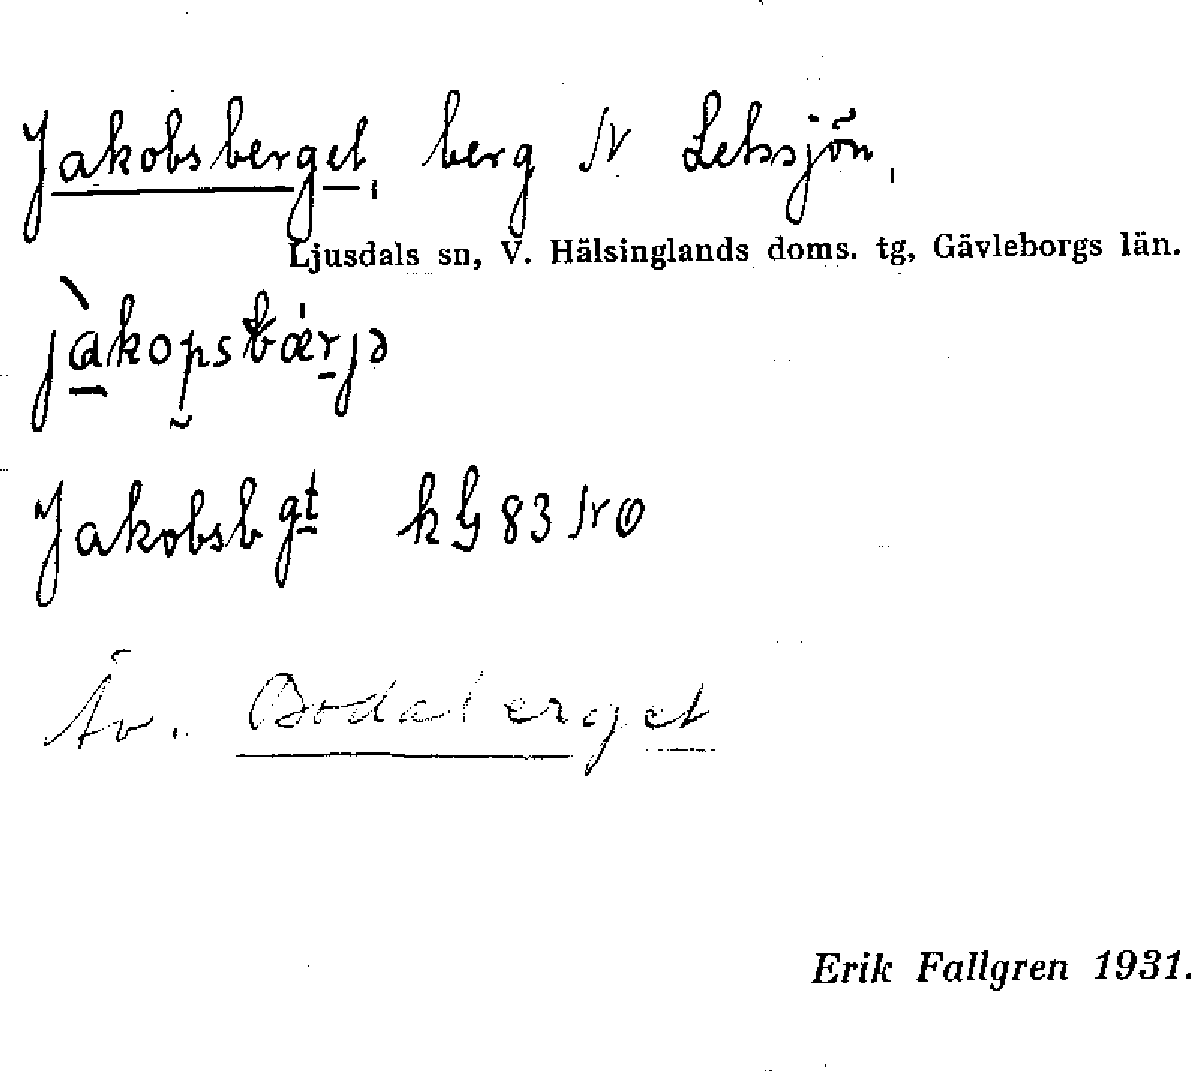 Jakobsberget, berg N Leksjön,
Ljusdals sn, V. Hälsinglands doms. tg, Gävleborgs län.
jàkopsbærjə
Jakobsbgt kG 83 NO
Äv. Bodaberget
Erik Fallgren 1931.